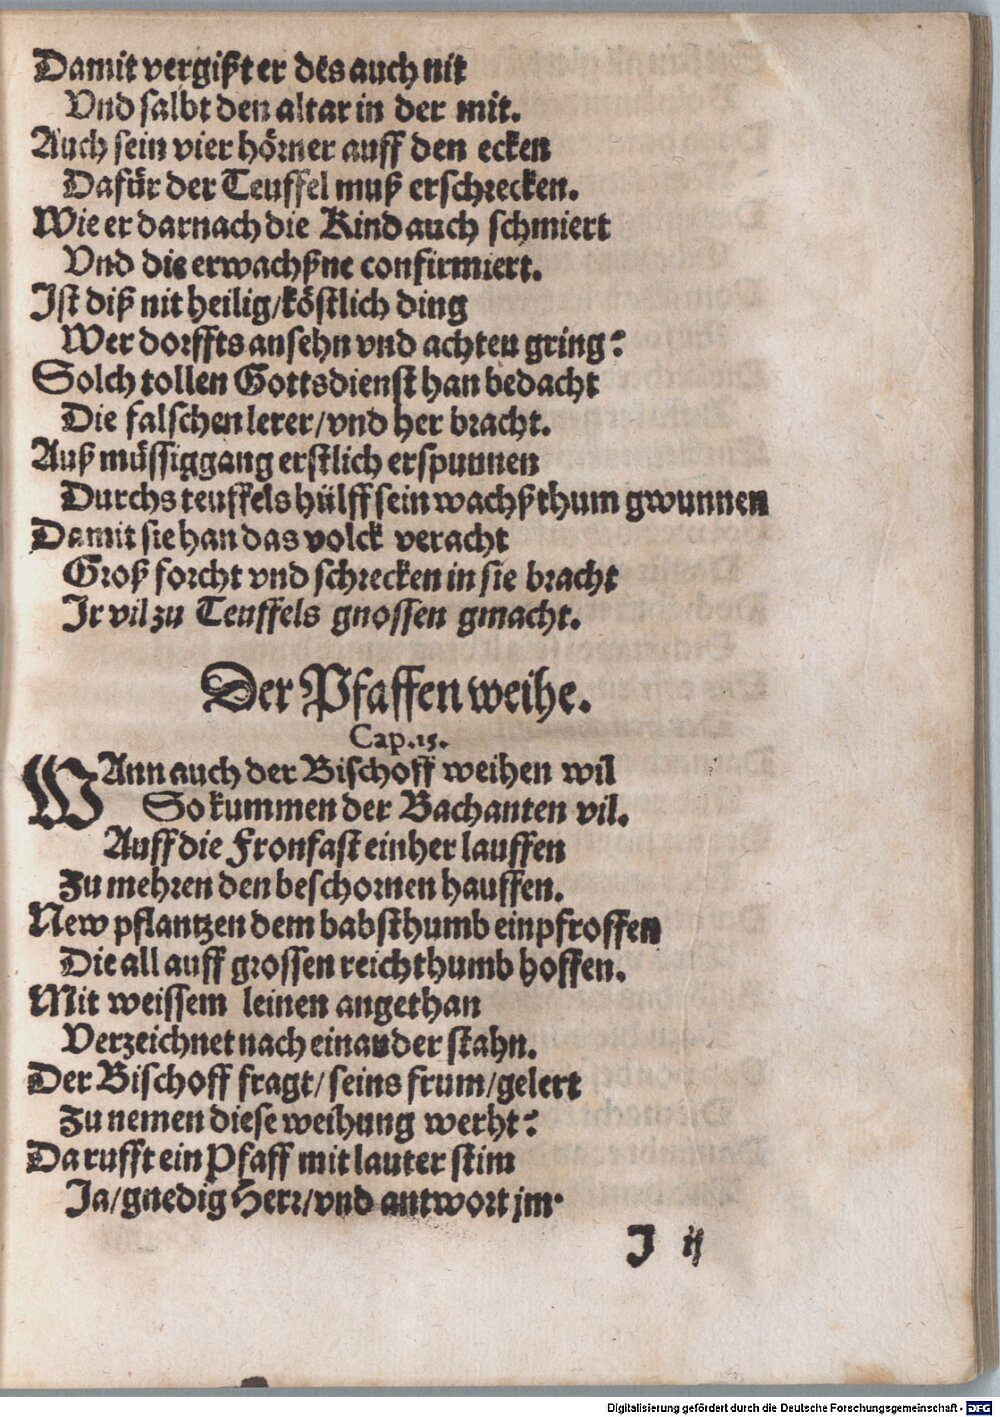 Damit vergißt er des auch nit
Vnd salbt den altar in der mit.
Auch sein vier hörner auff den ecken
Dafür der Teuffel muß erschrecken.
Wie er darnach die Kind auch schmiert
Vnd die erwachßne confirmiert.
Ist diß nit heilig/köstlich ding
Wer dorffts ansehn vnd achten gring?
Solch tollen Gottsdienst han bedacht
Die falschen lerer/vnd her bracht.
Auß müssiggang erstlich erspunnen
Durchs teuffels hülff sein wachßthum gwunnen
Damit sie han das volck veracht
Groß forcht vnd schrecken in sie bracht
Ir vil zu Teuffels gnossen gmacht.
Der Pfaffen weihe.
Cap.15.
WAnn auch der Bischoff weihen wil
So kummen der Bachanten vil.
Auff die Fronfast einher lauffen
Zu mehren den beschornen hauffen.
New pflantzen dem babsthumb einpfroffen
Die all auff grossen reichthumb hoffen.
Mit weissem leinen angethan
Verzeichnet nach einander stahn.
Der Bischoff fragt/seins frum/gelert
Zu nemen diese weihung werht?
Da rufft ein Pfaff mit lauter stim
Ja/gnedig Herr/vnd antwort jm.
J ij
Digitalisierung gefördert durch die Deutsche Forschungsgemeinschaft - DFG